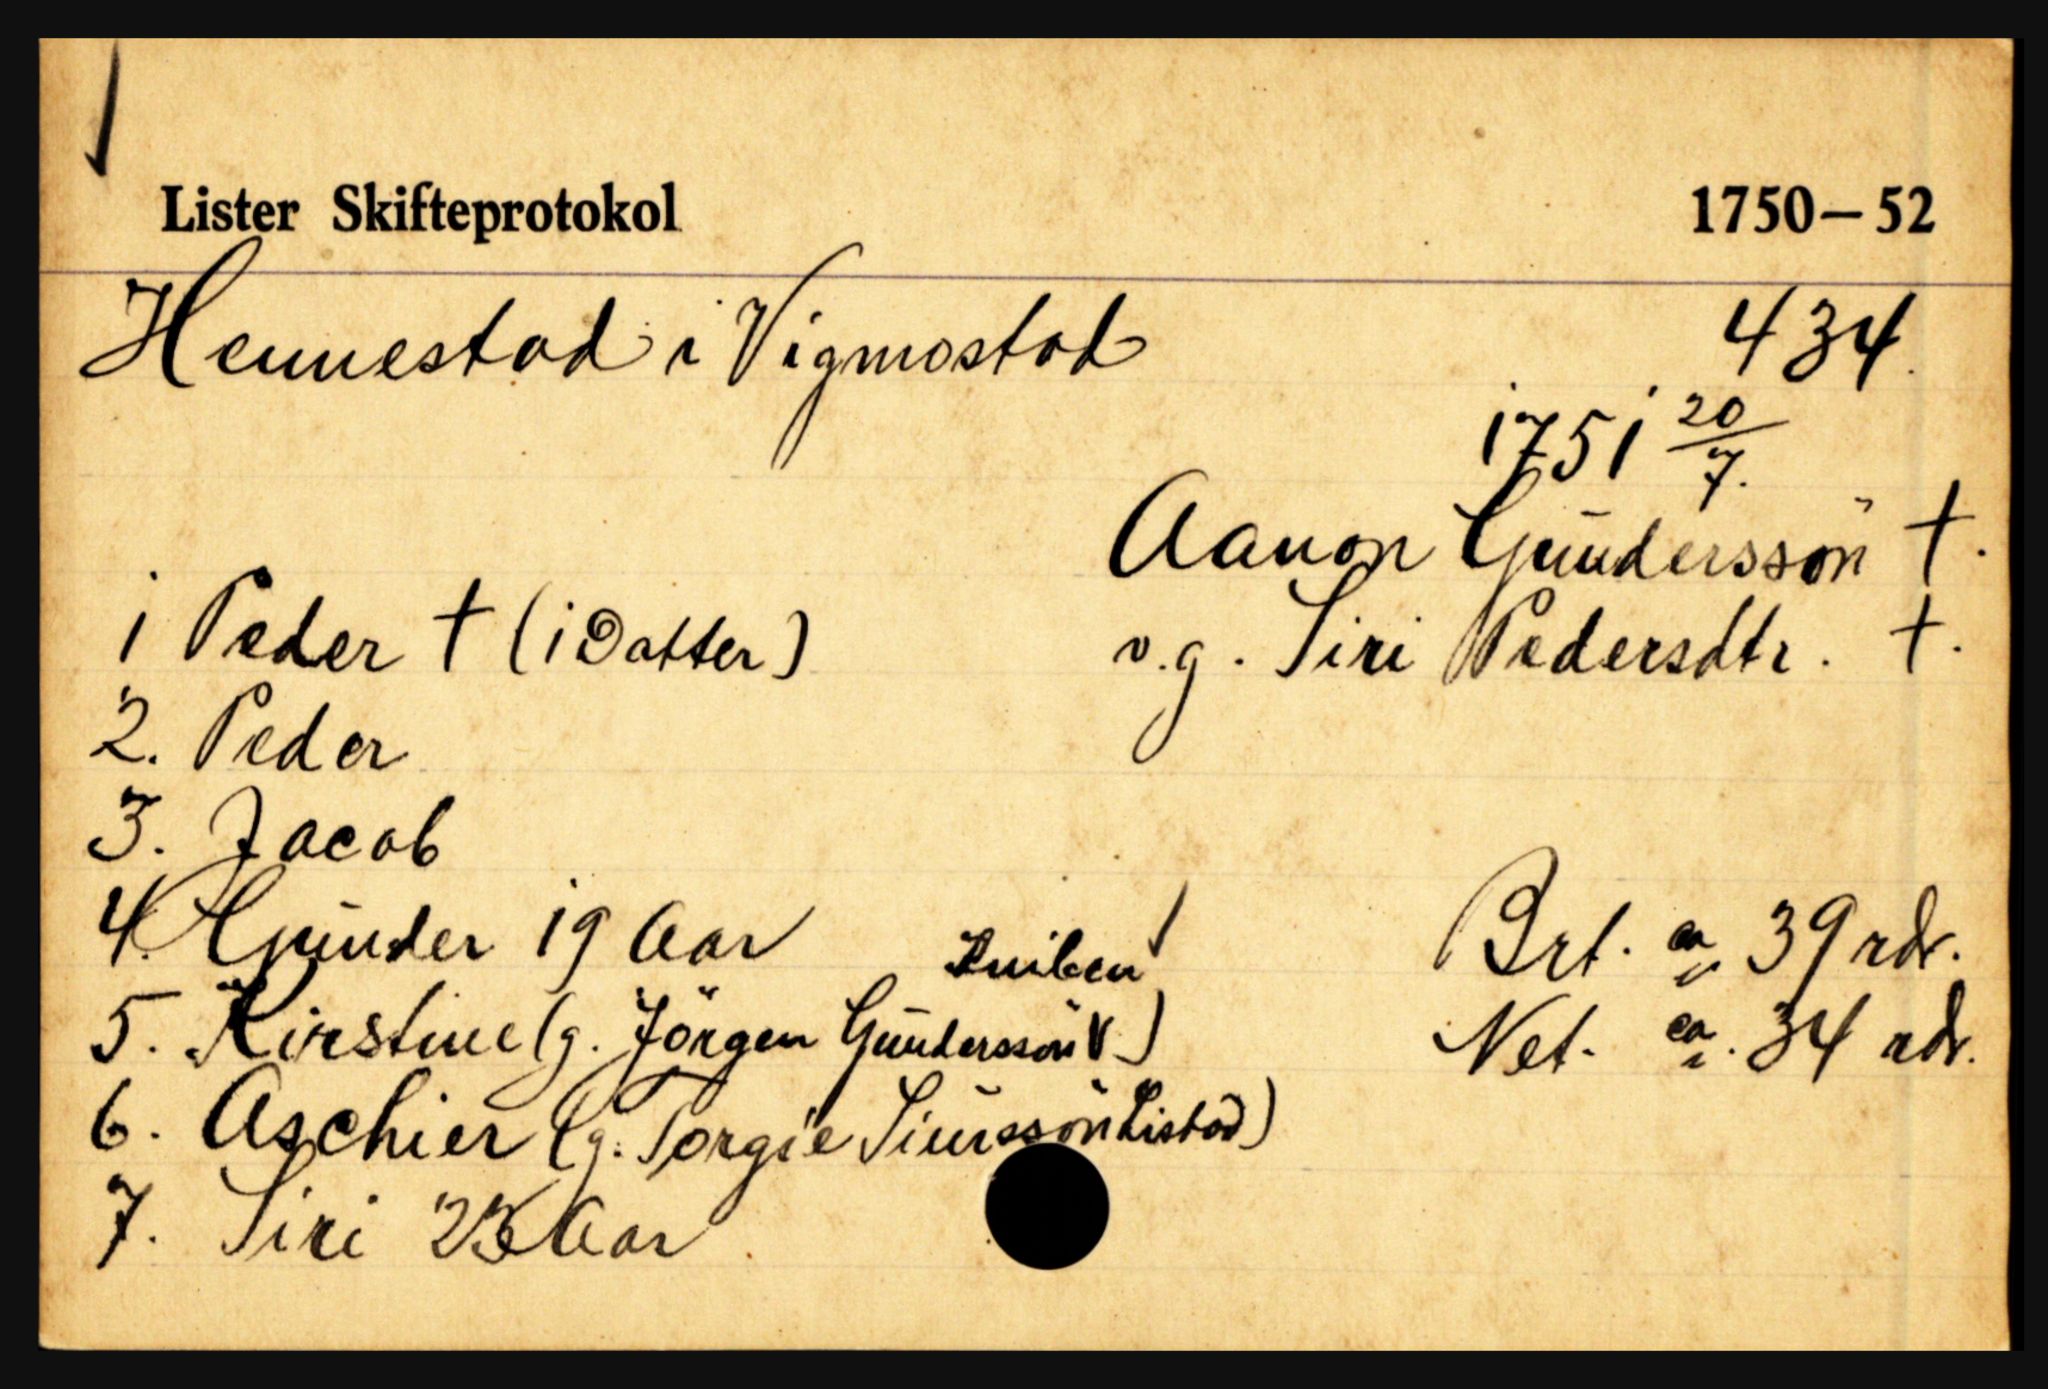 Lister Skifteprotokol 1750–52
Hennestad i Vigmostad 434.
1751 20/7.
Aanon Gunderssön †.
1 Peder † (1 Datter) v.g. Siri Pedersdtr. †.
2. Peder
3. Jacob
4. Gunder 19 Aar Brt. ca 39 rdr.
Kniben
5. Kirstine (g. Jörgen Gunderssön V.) Net. ca. 34 rdr.
6. Aschier (g. Torgie Siurssön Listad)
7. Siri Aar